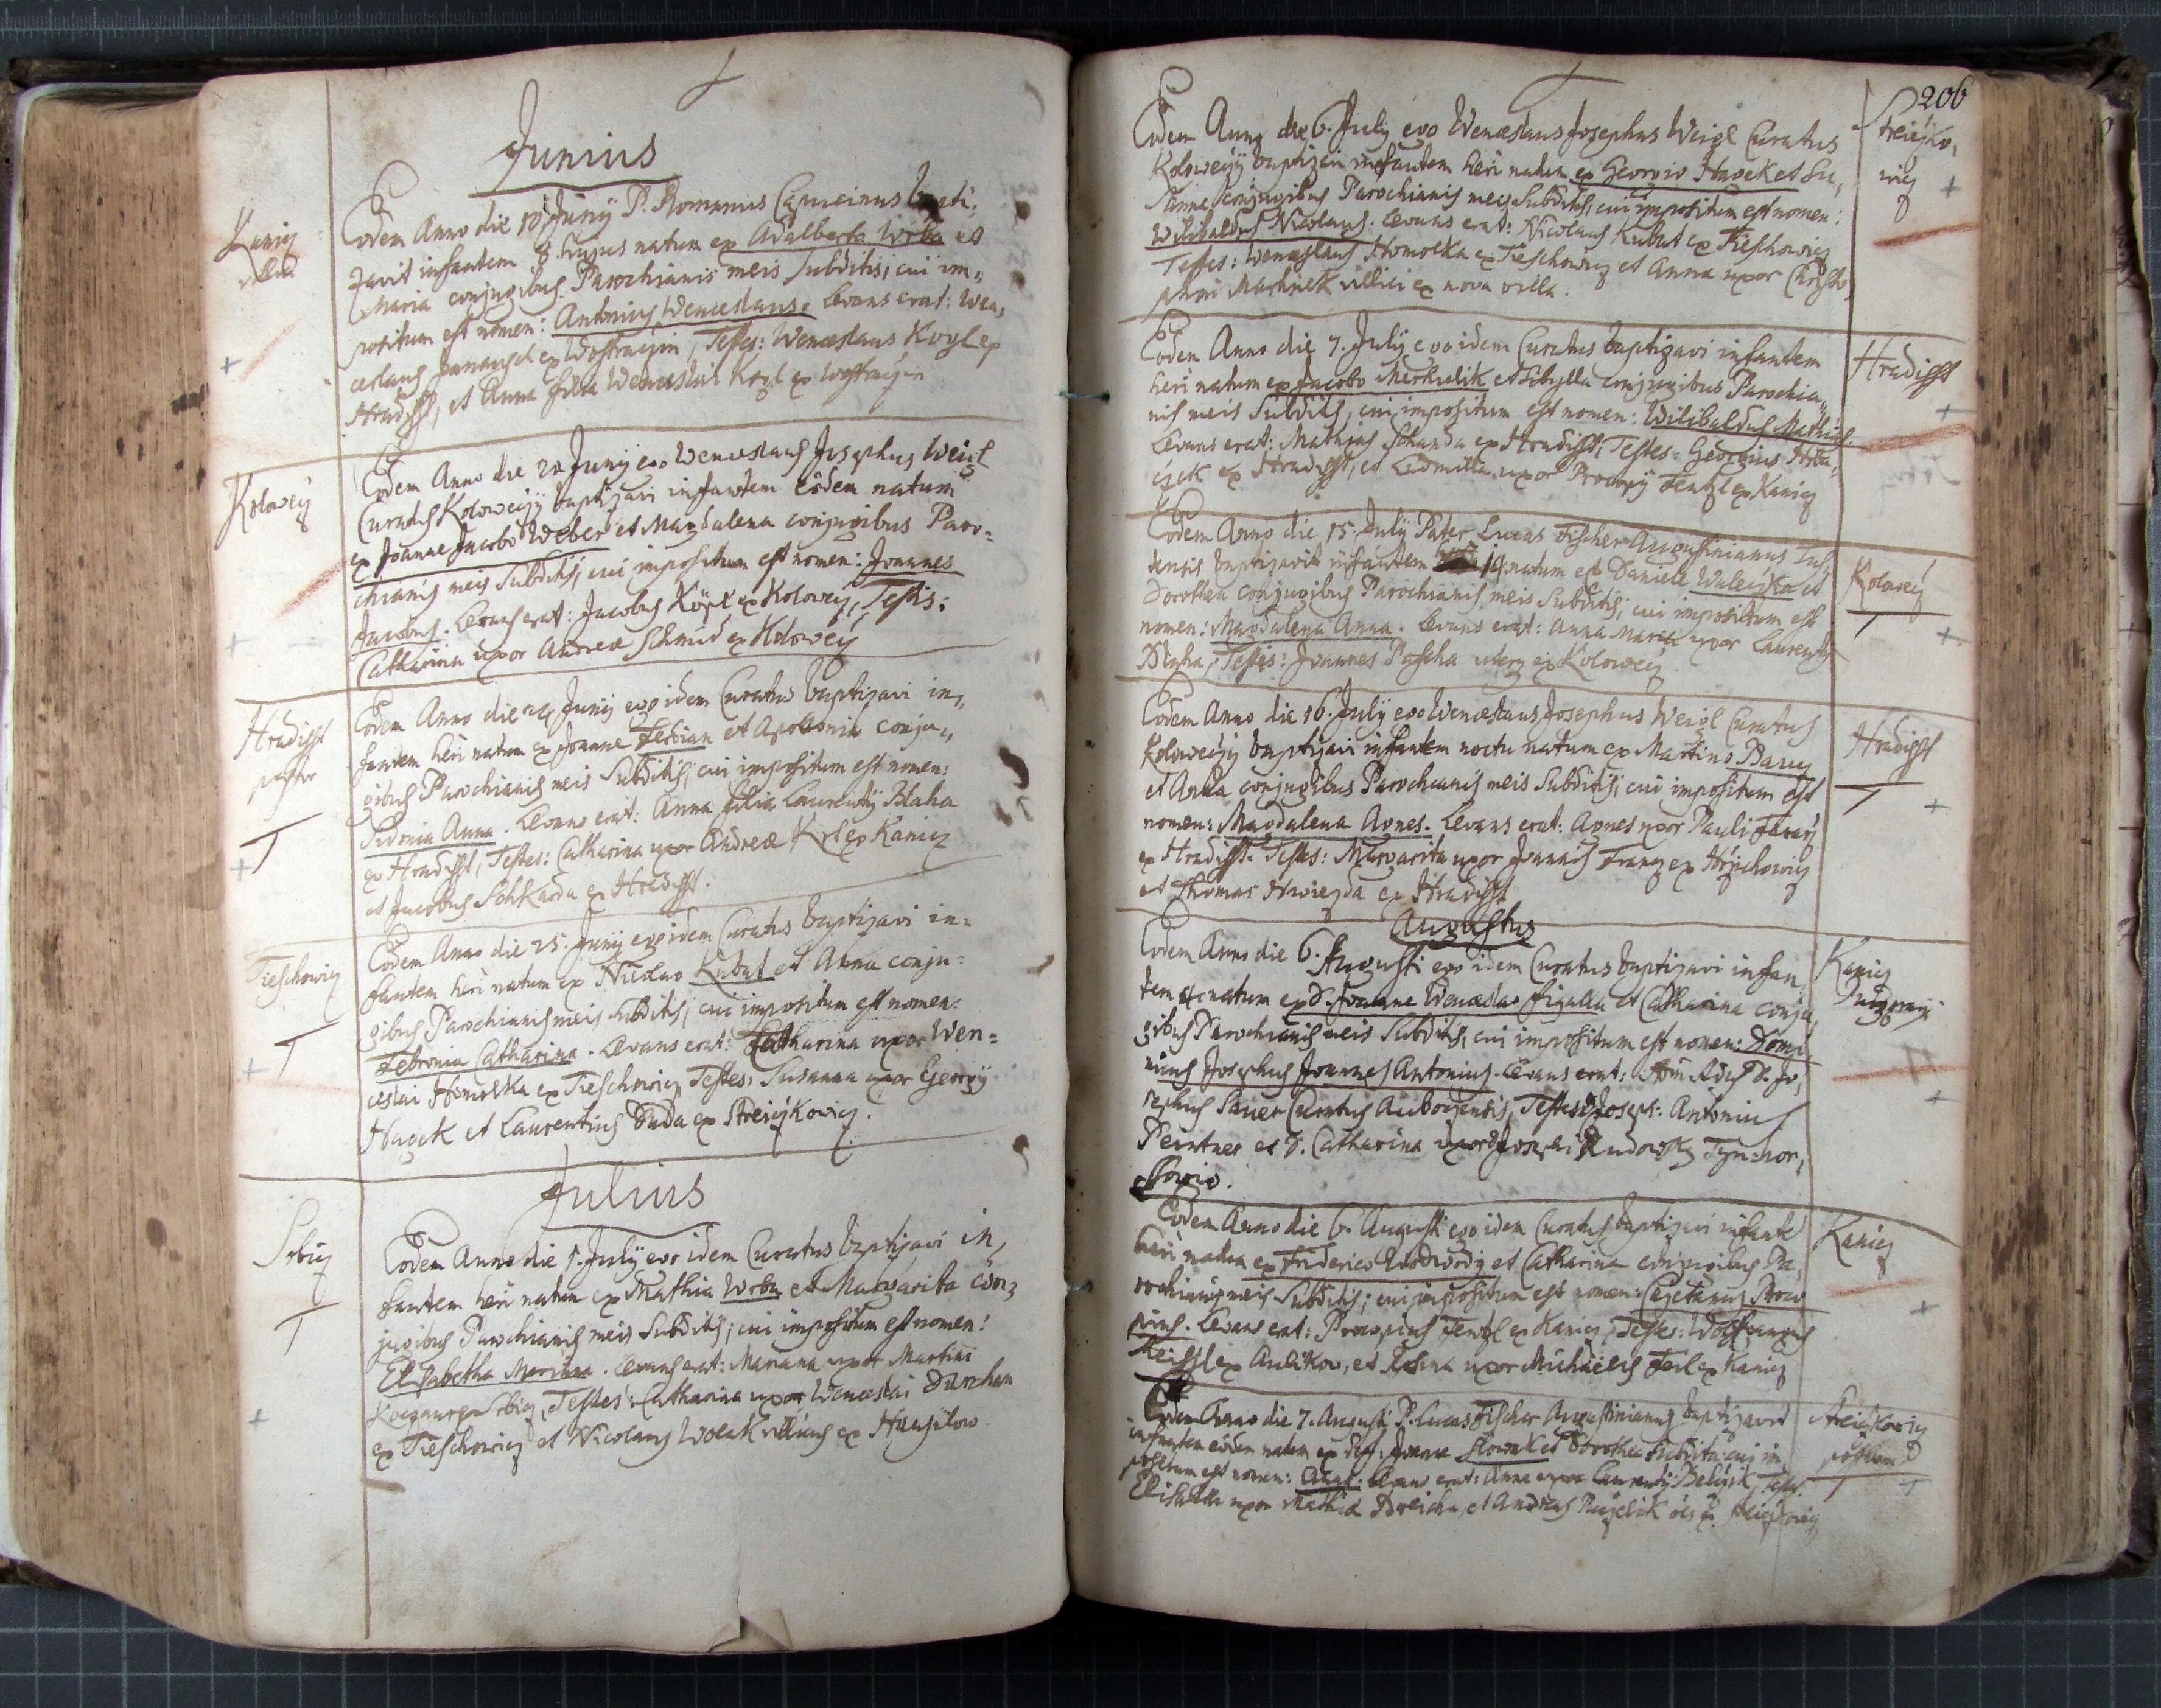 Junius
Kanicz
Eodem Anno die 10 Junÿ P. Romanus Capucinus bapti,
zavit infantem 8. hujus natum ex Adalberto Wrba et
Maria conjugibus Parochianis meis Subditis; cui im,,
positum est nomen: Antonius Wenceslaus. Levans erat: Wen,
ceslaus ex Wostraczin, Testes: Wenceslaus Kozl ex
Hradisst, et Anna filia Wenceslai Kozl ex Wostraczin
Kolowecz
Eodem Anno die 20 Junÿ ego Wenceslaus Josephus Weigl
Curatus Kolowecÿ baptizavi infantem eodem natum
ex Joanne Jacobo Weber et Magdalena conjugibus Paro=
chianis meis Subditis, cui impositum est nomen: Joannes
Jacobus. Levans erat: Jacobus ex Kolowecz, Testis:
Catharina uxor Andreæ Schmid ex Kolowecz
Hradisst
pastor
T
Eodem Anno die 24 Junÿ ego idem Curatus baptizavi in,
fantem heri natum ex Joanne Ferbian et Apolonia conju,,
gibus Parochianis meis Subditis; cui impositum est nomen:
Sidonia Anna. Levans erat: Anna filia Laurentÿ Blaha
ex Hradisst, Testes: Catharina uxor Andreæ Krl ex Kanicz
et Jacobus Schkarda ex Hradisst.
Tieschowicz
T
Eodem Anno die 25. Junÿ ego idem Curatus baptizavi in=
fantem heri natum ex Nicolao Kubat et Anna conju=
gibus Parochianis meis Subditis; cui impositum est nomen:
Febronia Catharina. Levans erat: Catharina uxor Wen=
ceslai Homolka ex Tieschowicz Testes: Susanna uxor Georgÿ
Haǧek et Laurentius Duda ex Streiczkowicz.
Julius
Srbicz
T
Eodem Anno die 1. Julÿ ego idem Curatus baptizavi in,
fantem heri natum ex Mathia Wrba et Margarita con,
jugibus Parochianis meis Subditis; cui impositum est nomen:
Elisabetha Mariana. Levans erat: Mariana uxor Martini
ex Srbicz, Testes: Catharina uxor Wenceslai
ex Tieschowicz et Nicolaus Wolak villicus ex
206
Streiczko,
wicz
Eodem Anno die 6. Julÿ ego Wenceslaus Josephus Weigl Curatus
Kolowecÿ baptizavi infantem heri natum ex Georgio Haǧek et Su,
sanna conjugibus Parochianis meis Subditis, cui impositum est nomen:
Wilibaldus Nicolaus. Levans erat: Nicolaus Kubat ex Tieschowicz
Testes: Wenceslaus Homolka ex Tieschowicz et Anna uxor Christo,
phori Machnik villici ex nova villa.
Hradisst
Eodem Anno die 7. Julÿ ego idem Curatus baptizavi infantem
heri natum ex Jacobo Merkulik et Sibylla conjugibus Parochia,,
nis meis Subditis, cui impositum est nomen: Wilibaldus Mathias.
Levans erat: Mathias Schanda ex Hradisst, Testes: Georgius Hrba,,
czek ex Hradisst, et Ludmilla uxor Procopÿ Fentzl ex Kanicz
Kolowecz
T
Eodem Anno die 15. Julÿ Pater Lucas Fischer Augustinianus
baptizavit infantem 14 natum ex Daniele Waleczka et
Dorothea conjugibus Parochianis meis Subditis; cui impositum est
nomen: Magdalena Anna. Levans erat: Anna Maria uxor Laurentÿ
Blaha, Testis: Joannes Pascha uterq ex Kolowecz.
Hradisst
T
Eodem Anno die 16. Julÿ ego Wenceslaus Josephus Weigl Curatus
Kolowecÿ baptizavi infantem noctu natum ex Martino Bauer
et Anna conjugibus Parochianis meis Subditis; cui impositum est
nomen: Magdalena Agnes. Levans erat: Agnes uxor Pauli
ex Hradisst. Testes: Margarita uxor Joannis Francz ex Hrzichowicz
et Thomas Hwiezda ex Hradisst
Augustus
Kanicz
Eodem Anno die 6. Augusti ego idem Curatus baptizavi infan,
tem 4 natum ex D. Joanne Wenceslao Figalla et Catharina conju,
gibus Parochianis meis Subditis, cui impositum est nomen: Domi,
nicus Josephus Joannes Antonius. Levans erat: D. Jo,
sephus Sauer Curatus Testes: Joseph: Antonius
Pentner et D. Catharina uxor Josephi
Kanicz
Eodem Anno die 6. Augusti ego idem Curatus baptizavi infante
heri natum ex Friderico et Catharina conjugibus Pa,
rochianis meis Subditis; cui impositum est nomen: Cajetanus Proco
pius. Levans erat: Procopius Fentzl ex Kanicz, Testes: Wolfgangus
ex Aulikow, et Rosina uxor Michaelis Feil ex Kanicz
Streiczkowicz
T
Eodem Anno die 7. Augusti P. Lucas Fischer Augustinianus baptizavit
infantem eodem natam ex Joanne et Dorothea subdita: cui im,
positum est nomen: Anna. Levans erat: Anna uxor Laurentÿ Testes:
Elisabetha uxor Mathiæ et Andreas